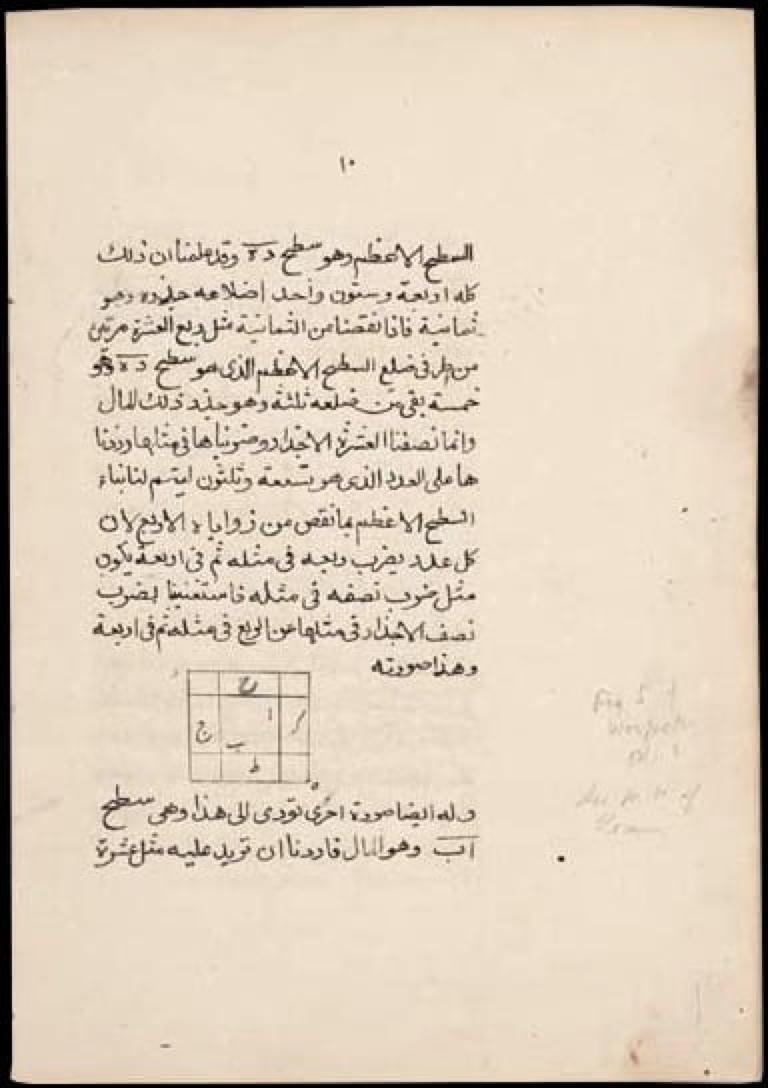 ١٠
السطح الاعظم وهو سطح ده وقد علمنا ان ذلك
كله اربعة وستون واحد اضلاعه جذره وهو
ثمانية فاذا نقصنا من الثمانية مثل ربع العشرة مرتين
من طرفى ضلع السطح الاعظم الذى هو سطح ده وهو
خمسة بقى من ضلعه ثلثة وهو جذر ذلك المال
وانما نصفنا العشرة الاجذار وضربناها فى مثلها وزدنا
ها على العدد الذى هو تسعة وثلثون ليتم لنا بناء
السطح الاعظم بما نقص من زواياه الاربع لان
كل عدد يضرب ربعه فى مثله ثم فى اربعة يكون
مثل ضرب نصفه فى مثله فاستغنينا بضرب
نصف الاجذار فى مثلها عن الربع فى مثله ثم فى اربعة
وهذا صورته
د
ح
ا
ج
ب
ط
ه
وله ايضا صورة اخرى تؤدى الى هذا وهى سطح
اب وهو المال فاردنا ان نزيد عليه مثل عشرة
Fig 5